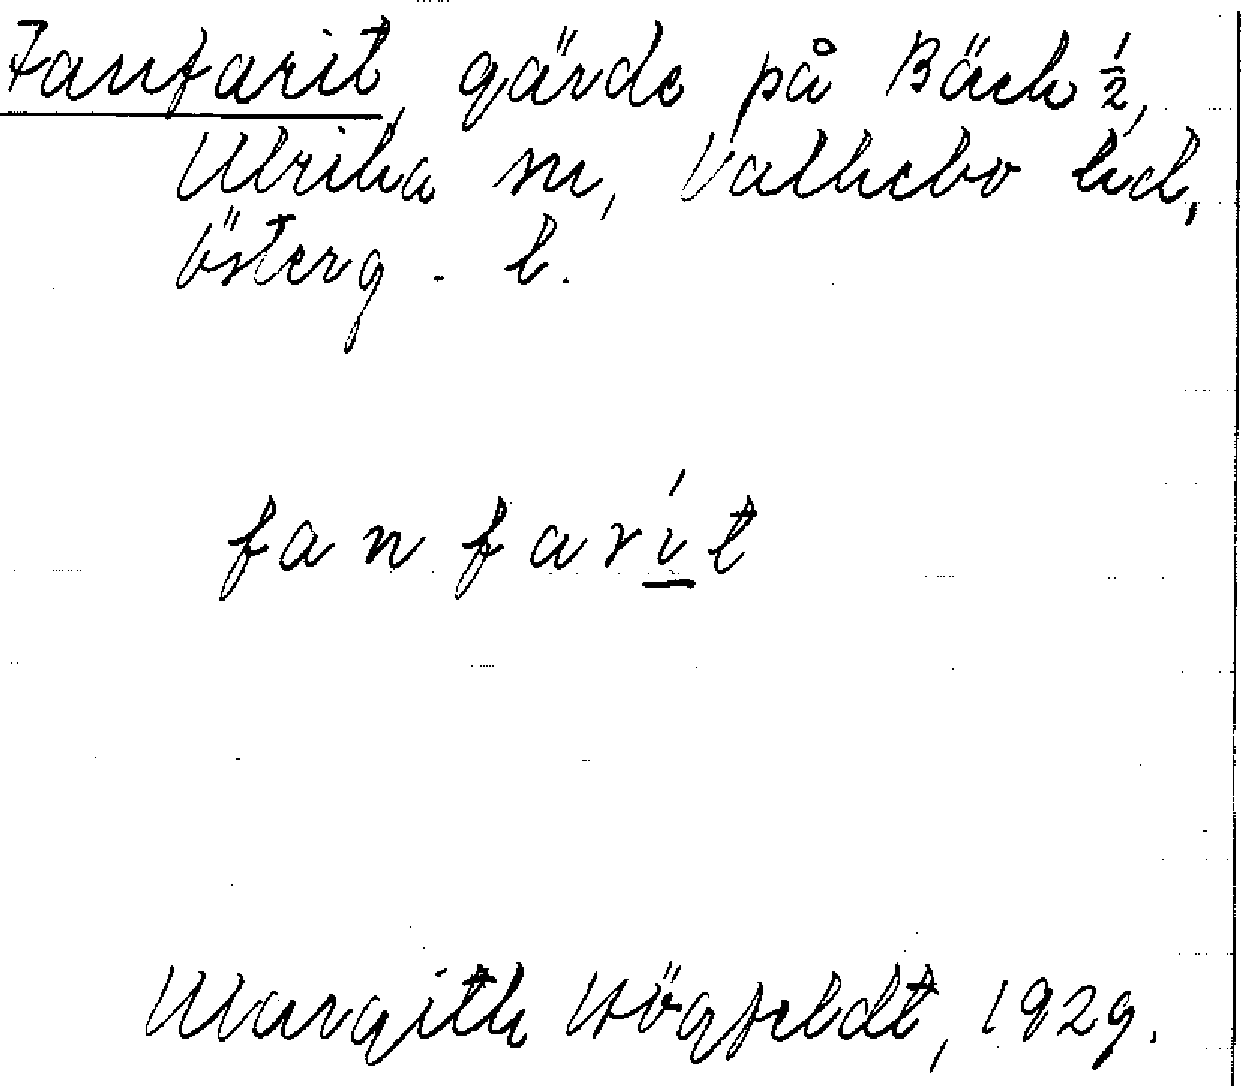 Fanfarit, gärde på Bäck ½,
Ulrika sn, Valkebo hd,
Österg. l.
fanfarít
Margith Högfeldt, 1929.